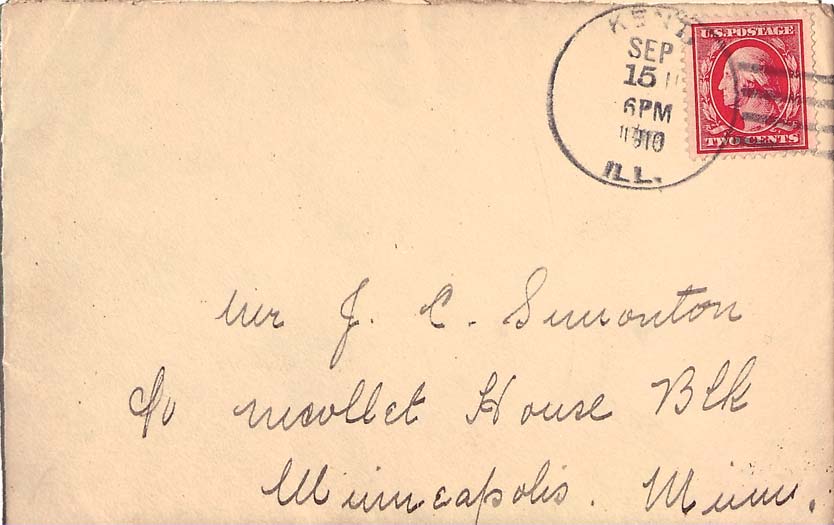 KENT
SEP
15
6PM
1910
ILL.
U.S. POSTAGE
TWO CENTS
Mr J. C. Simonton
c/o Nicollet House Blk
Minneapolis. Minn.